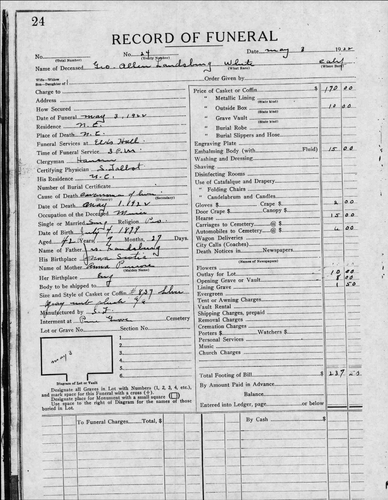 24
RECORD OF FUNERAL
No. No. 24 Date May 3 1922
(Serial Number) (Yearly Number)
Name of Deceased Geo. Allen Landsburg White
(What Race)
Order Given by
Charge to
Address
How Secured
Date of Funeral May 3, 1922
Residence N.C.
Place of Death N.C.
Funeral Services at Elks Hall
Time of Funeral Service 3 P.M.
Clergyman
Certifying Physician S. Talbot
His Residence N.C.
Number of Burial Certificate
Cause of Death of liver
(Primary) (Secondary)
Date of Death May 1, 1922
Occupation of the Deceased Miner
Single or Married Religion
Date of Birth July 4, 1879
Aged 42 Years Months 27 Days.
Name of Father Landsburg
His Birthplace Nova Scotia
Name of Mother Anna
(Maiden Name)
Her Birthplace
Body to be shipped to
Size and Style of Casket or Coffin #837
Manufactured by S.F.
Interment at Pine Grove Cemetery
Lot or Grave No. Section No.
1.
2.
3.
4.
5.
6.
Diagram of Lot or Vault
Designate all Graves in Lot with Numbers (1, 2, 3, 4, etc.),
and mark space for this Funeral with a cross (+).
Designate place for Monument with a small square
Use space to right of Diagram for the names of those
buried in Lot.
Price of Casket or Coffin $ 170 00
" Metallic Lining
(State Kind)
" Outside Box 10 00
(State Kind)
" Grave Vault
(State Kind)
" Burial Robe
(State Kind)
" Burial Slippers and Hose
Engraving Plate
Embalming Body (with Fluid) 15 00
Washing and Dressing
Shaving
Disinfecting Rooms
Use of Catafalque and Drapery
" Folding Chairs
" Candelabrum and Candles
Gloves $ Crape $ 2 00
Door Crape Gloves $
Hearse 15 00
Carriages to Cemetery @ $
Automobiles to Cemetery @ $
Wagon Deliveries
City Calls (Coaches)
Death Notices in Newspapers
(Names of Newspapers)
Flowers
Outlay for Lot 10 00
Opening Grave or Vault
Lining Grave 1 50
Evergreen
Tent or Awning Charges
Vault Rental
Shipping Charges, prepaid
Removal Charges
Cremation Charges
Porters $ Watchers $
Personal Services
Music
Church Charges
Total Footing of Bill $ 237 50
By Amount Paid in Advance
Balance
Entered into Ledger, page or below.
To Funeral Charges, Total $ By Cash $